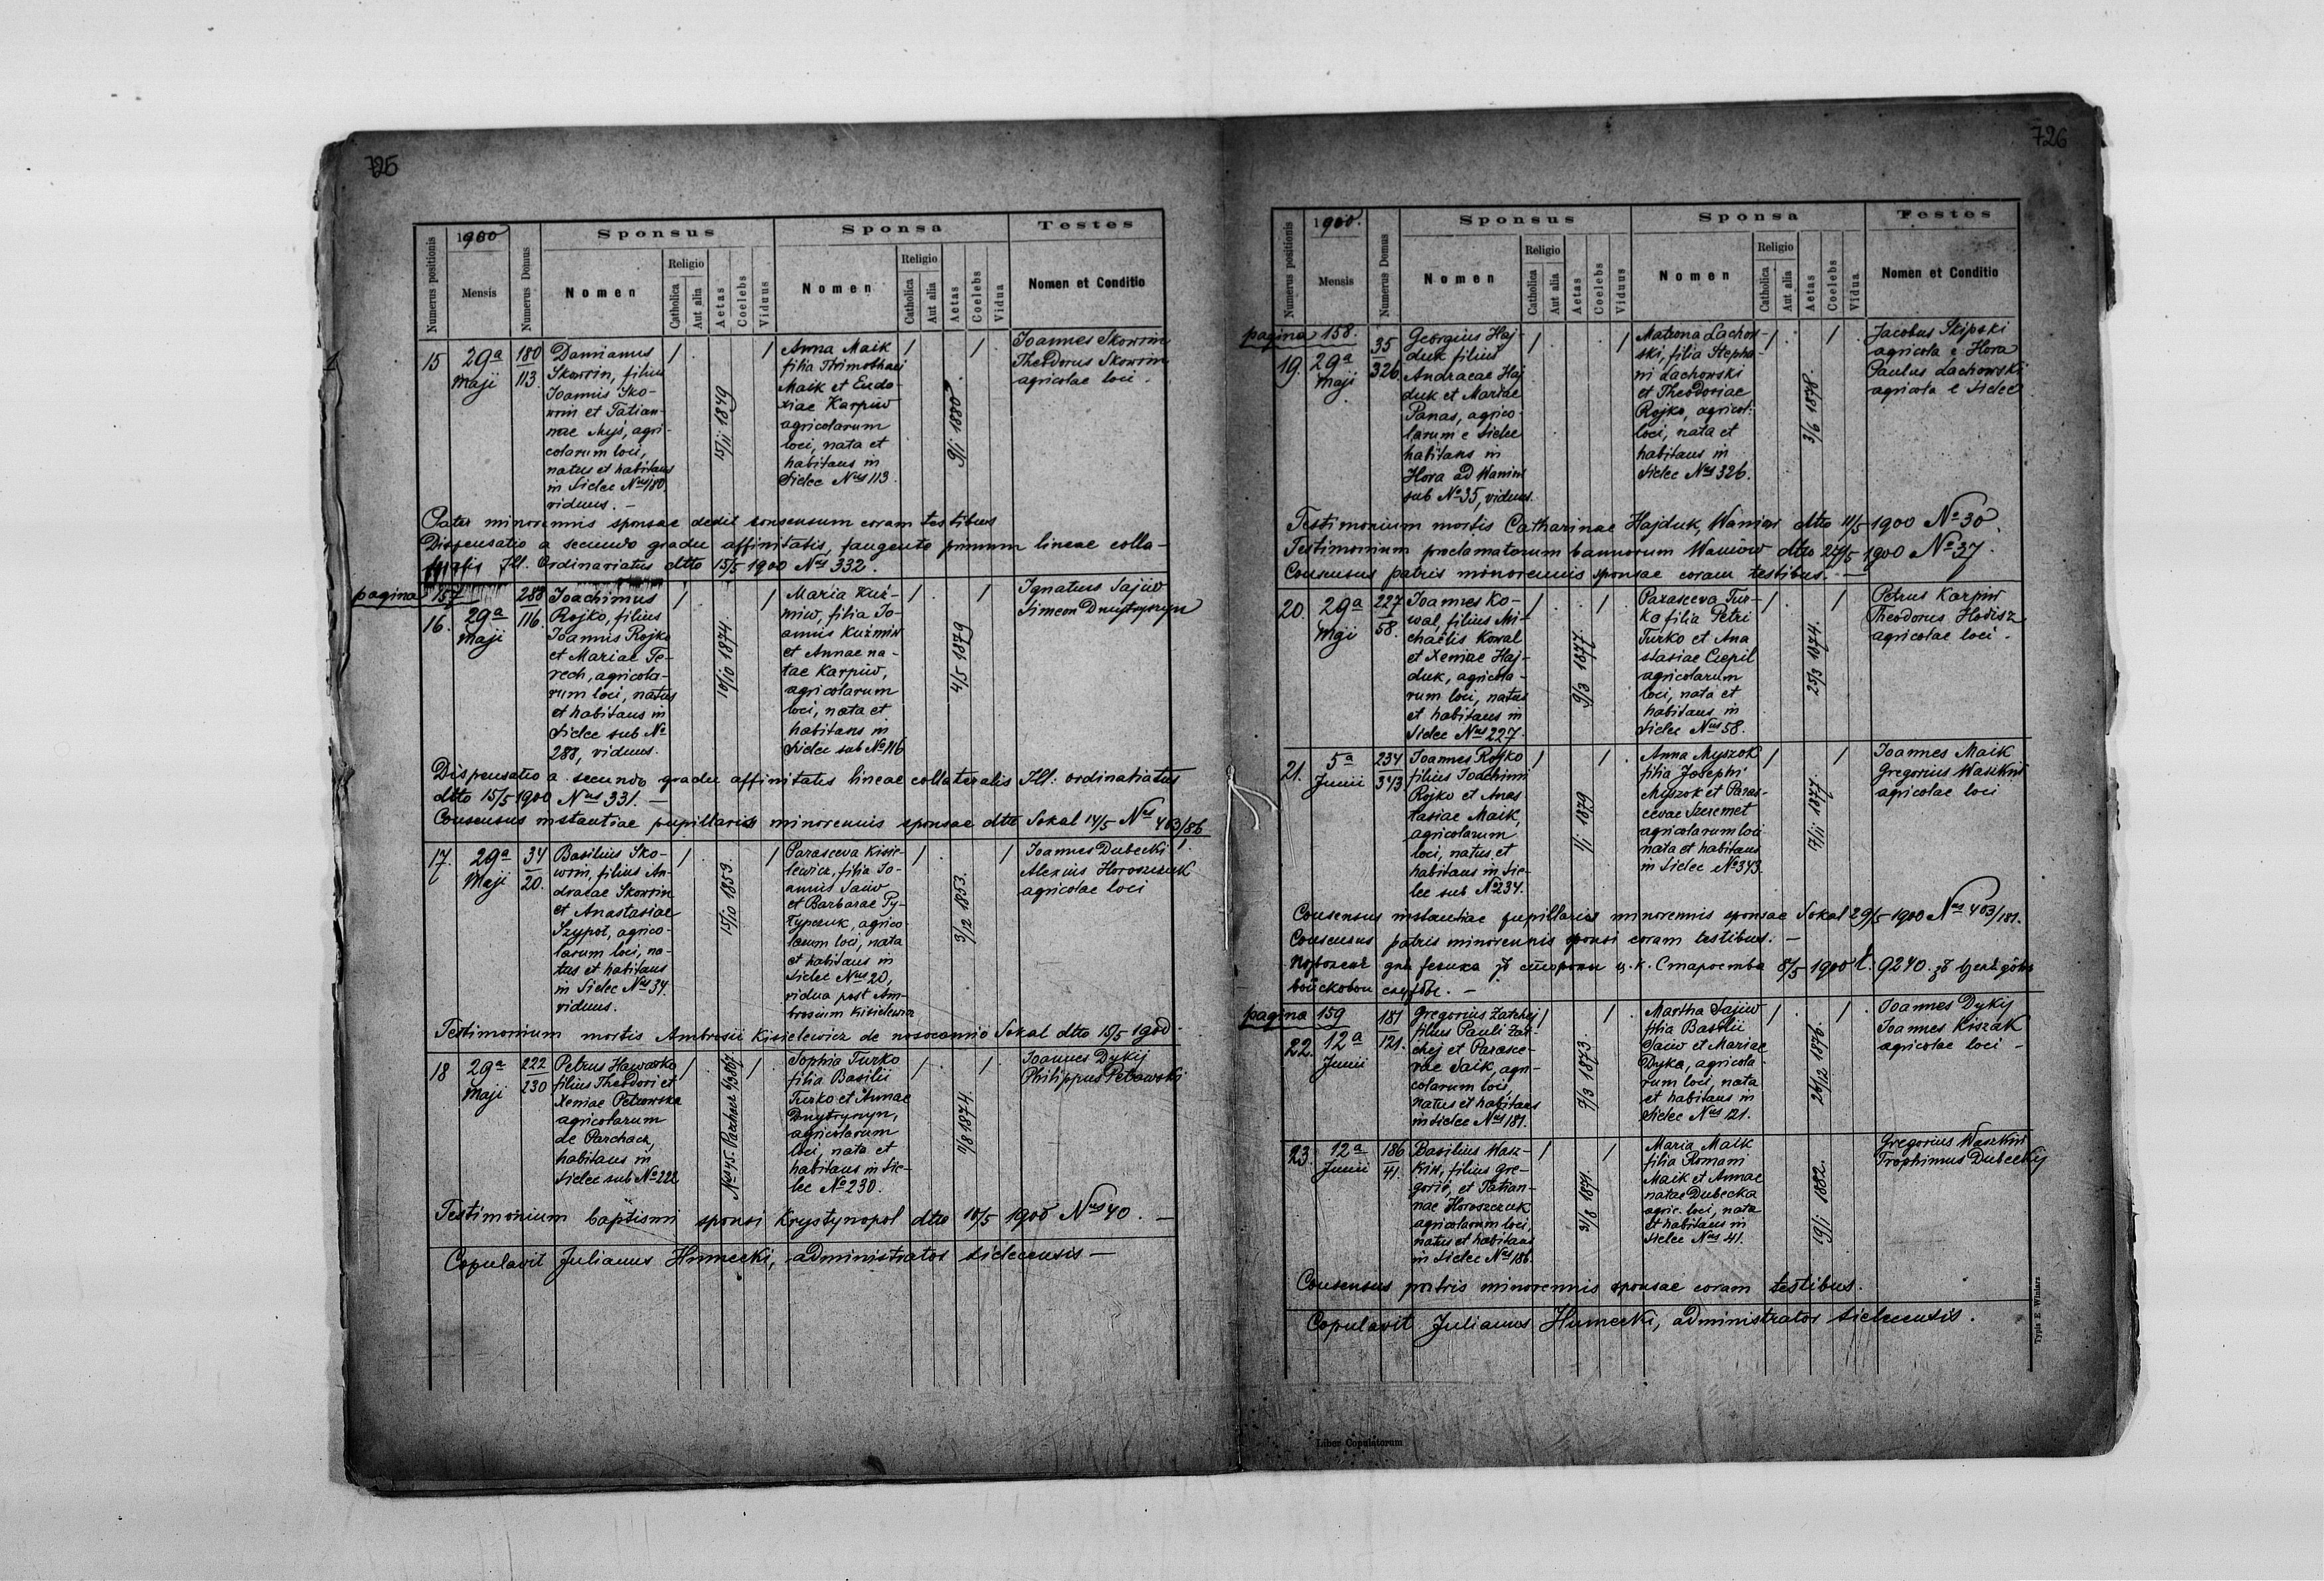 725
Numerus positionis
1900
Mensis
Numerus Domus
Sponsus
Nomen
Religio
Catholica
Aut alia
Aetas
Coelebs
Viduus
Sponsa
Nomen
Religio
Catholica
Aut alia
Aetas
Coelebs
Vidua
Testes
Nomen et Conditio
15
29a
Maji
180
113.
Damianus
Skowrin, filius
Joannis Sko-
wrin et Tatian-
nae Myś, agri-
colarum loci,
natus et habitans
in Sielec Nus 180,
viduus. -
/
15/11 1849
/
Anna Maik
filia Thimothaei
Maik et Eudo-
xiae Karpiw
agricolarum
loci, nata et
habitans in
Sielec Nus 113.
/
9/1 1880
/
Joannes Skowrin
Theodorus Skowrin
agricolae loci.
Pater minorennis sponsae dedit consensum coram testibus
Dispensatio a secundo gradu affinitatis, tangente primum lineae colla-
Ill. Ordinariatus dtto 15/5 1900 Nus 332.
pagina 157
16.
29a
Maji
288
116.
Joachimus
Rojko, filius
Joannis Rojko
et Mariae Te-
rech, agricola-
rum loci, natus
et habitans in
Sielec sub No
288, viduus.
/
10/10 1874
/
Maria Kuź-
miw, filia Jo-
annis Kuźmiw
et Annae na-
tae Karpiw,
agricolarum
loci, nata et
habitans in
Sielec sub No 116
/
4/5 1879
/
Ignatius Sajiw
Simeon Dmytryszyn
Dispensatio a secundo gradu affinitatis lineae collateralis Ill: ordinatiatus
dtto 15/5 1900 Nus 331. -
Consensus instantiae pupillaris minorennis sponsae dtto Sokal 14/5 Nus 403/86
17.
29a
Maji
34
20.
Basilius Sko-
wrin, filius An-
dreae Skowrin
et Anastasiae
Szypot, agrico-
larum loci, na-
tus et habitans
in Sielec Nus 34.
viduus.
/
15/10 1853.
/
Parasceva Kisie-
lewicz, filia Jo-
annis Saiw
et Barbarae Ty-
typczuk, agrico-
larum loci, nata
et habitans in
Sielec Nus 20,
vidua post Am-
brosium Kisielewicz
/
3/12 1853.
/
Joannes Dubecki
Alexius Horoszczuk
agricolae loci
Testimonium mortis Ambrosii Kisielewicz de nosocomio Sokal dtto 15/5 1900.
18
29a
Maji
222
230
Petrus Hawatko
filius Theodori et
Xeniae Petrowska
agricolarum
de Parchacz,
habitans in
Sielec sub No 222
/
Nus 45. Parchacz
/
Sophia Turko
filia Basilii
Turko et Annae
Dmytryszyn,
agricolarum
loci, nata et
habitans in Sie-
lec No 230.
/
1/8 1874.
/
Joannes Dykij
Philippus Petrowski
Testimonium baptismi sponsi Krystynopol dtto 10/5 1900 Nus 40. -
Copulavit Julianus Humecki, administrator sielecensis -
726
Numerus positionis
1900.
Mensis
Numerus Domus
Sponsus
Nomen
Religio
Catholica
Aut alia
Aetas
Coelebs
Viduus
Sponsa
Nomen
Religio
Catholica
Aut alia
Aetas
Coelebs
Vidua
Testes
Nomen et Conditio
pagina 158.
19.
29a
Maji
35
326.
Georgius Haj-
duk filius
Andraeae Haj
duk et Mariae
Panas, agrico-
larum e Sielec
habitans in
Hora ad Waniow
sub No 35, viduus.
/
/
Matrona Lachow-
ski, filia Stepha-
ni Lachowski
et Theodoriae
Rojko, agricol.
loci, nata et
habitans in
Sielec Nus 326.
/
3/6 1878.
/
Jacobus Slipski
agricola e Hora
Paulus Lachowski
agricola e Sielec
Testimonium mortis Catharinae Hajduk, Waniow dtto 11/5 1900 No 30.
Testimonium proclamatorum bannorum Waniow dtto 27/5 1900 No 37.
Consensus patris minorennis sponsae coram testibus. -
20.
29a
Maji
227
58.
Joannes Ko-
wal, filius Mi-
chaëlis Kowal
et Xeniae Haj-
duk, agricola-
rum loci, natus
et habitans in
Sielec Nus 227.
/
9/3 1877.
/
Parasceva Tur-
ko filia Petri
Turko et Ana
stasiae Ciepil
agricolarum
loci, nata et
habitans in
Sielec Nus 58.
/
25/3 1874.
/
Petrus Karpiw
Theodorus Hodisz
agricolae loci -
21.
5a
Junii
234
343
Joannes Rojko
filius Joachimi
Rojko et Anas-
tasiae Maik,
agricolarum
loci, natus et
habitans in Sie-
lec sub No 234.
/
1/1 1879
/
Anna Myszok
filia Josephi
Myszok et Paras-
cevae Szeremet
agricolarum loci
nata et habitans
in Sielec No 343.
/
7/11 1877.
/
Joannes Maik
Gregorius Waszkiw
agricolae loci
Consensus instantiae pupillaris minorennis sponsae Sokal 29/5 1900 Nus 403/181.
Consensus patris minorennis sponsi coram testibus. -
ц. к. Староства 8/5 1900 Ł. 9240.
pagina 159
22.
12a
Junii
181
121.
Gregorius Zatchej
filius Pauli Zat-
chej et Parasce-
vae Saik, agri-
colarum loci
natus et habitans
in Sielec Nus 181.
/
7/3 1873.
/
Martha Sajiw
filia Basilii
Saiw et Mariae
Dyka, agricola
rum loci, nata
et habitans in
Sielec Nus 121.
/
26/12 1876.
/
Joannes Dykij
Joannes Kiszak
agricolae loci -
23.
12a
Junii
186
41.
Basilius Wasz-
kiw, filius Gre-
gorii, et Tatian-
nae Horoszczuk
agricolarum loci,
natus et habitans
in Sielec Nus 186.
/
31/8 1871.
/
Maria Maik
filia Romani
Maik et Annae
natae Dubecka
agric. loci, nata
et habitans in
Sielec Nus 41.
19/1 1882.
Gregorius Waszkiw
Trophimus Dubeckij
Consensus patris minorennis sponsae coram testibus.
Copulavit Julianus Humecki, administrator sielecensis.
Typis E Winiarz
Liber Copulatorum